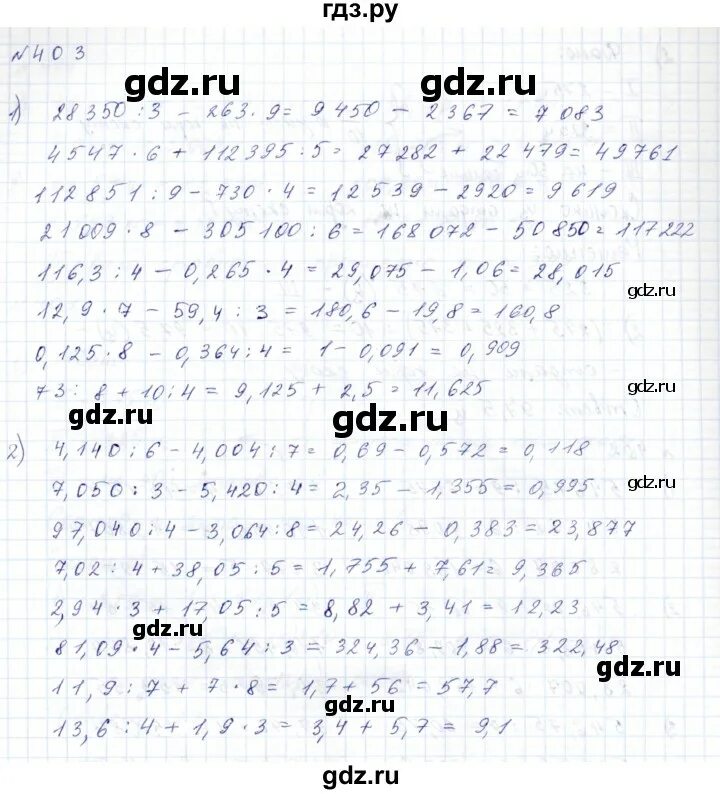 гдз.ру
№403
gdz.ru gdz.ru
1) 28350:3 - 263·9= 9450 - 2367 = 7083
4547·6 + 112395:5= 27282 + 22479= 49761
112851:9 - 730·4 = 12539 - 2920 = 9619
21009·8 - 305100:6 = 168072 - 50850= 117222
116,3:4 - 0,265·4 = 29,075 - 1,06 = 28,015
gdz.ru
12,9·7 - 59,4:3 = 180,6 - 19,8 = 160,8
0,125·8 - 0,364:4 = 1 - 0,091 = 0,909
73:8 + 10:4 = 9,125 + 2,5 = 11,625
gdz.ru
gdz.ru gdz.ru
2) 4,140:6 - 4,004:7 = 0,69 - 0,572 = 0,118
7,050:3 - 5,420:4 = 2,35 - 1,355 = 0,995
gdz.ru
97,040:4 - 3,064:8 = 24,26 - 0,383 = 23,877
7,02:4 + 38,05:5 = 1,755 + 7,61= 9,365
2,94·3 + 17,05:5 = 8,82 + 3,41 = 12,23
gdz.ru
81,09·4 - 5,64:3 = 324,36 - 1,88 = 322,48
gdz.ru
11,9:7 + 7·8 = 1,7 + 56 = 57,7
gdz.ru
13,6:4 + 1,9·3 = 3,4 + 5,7 = 9,1
gdz.ru